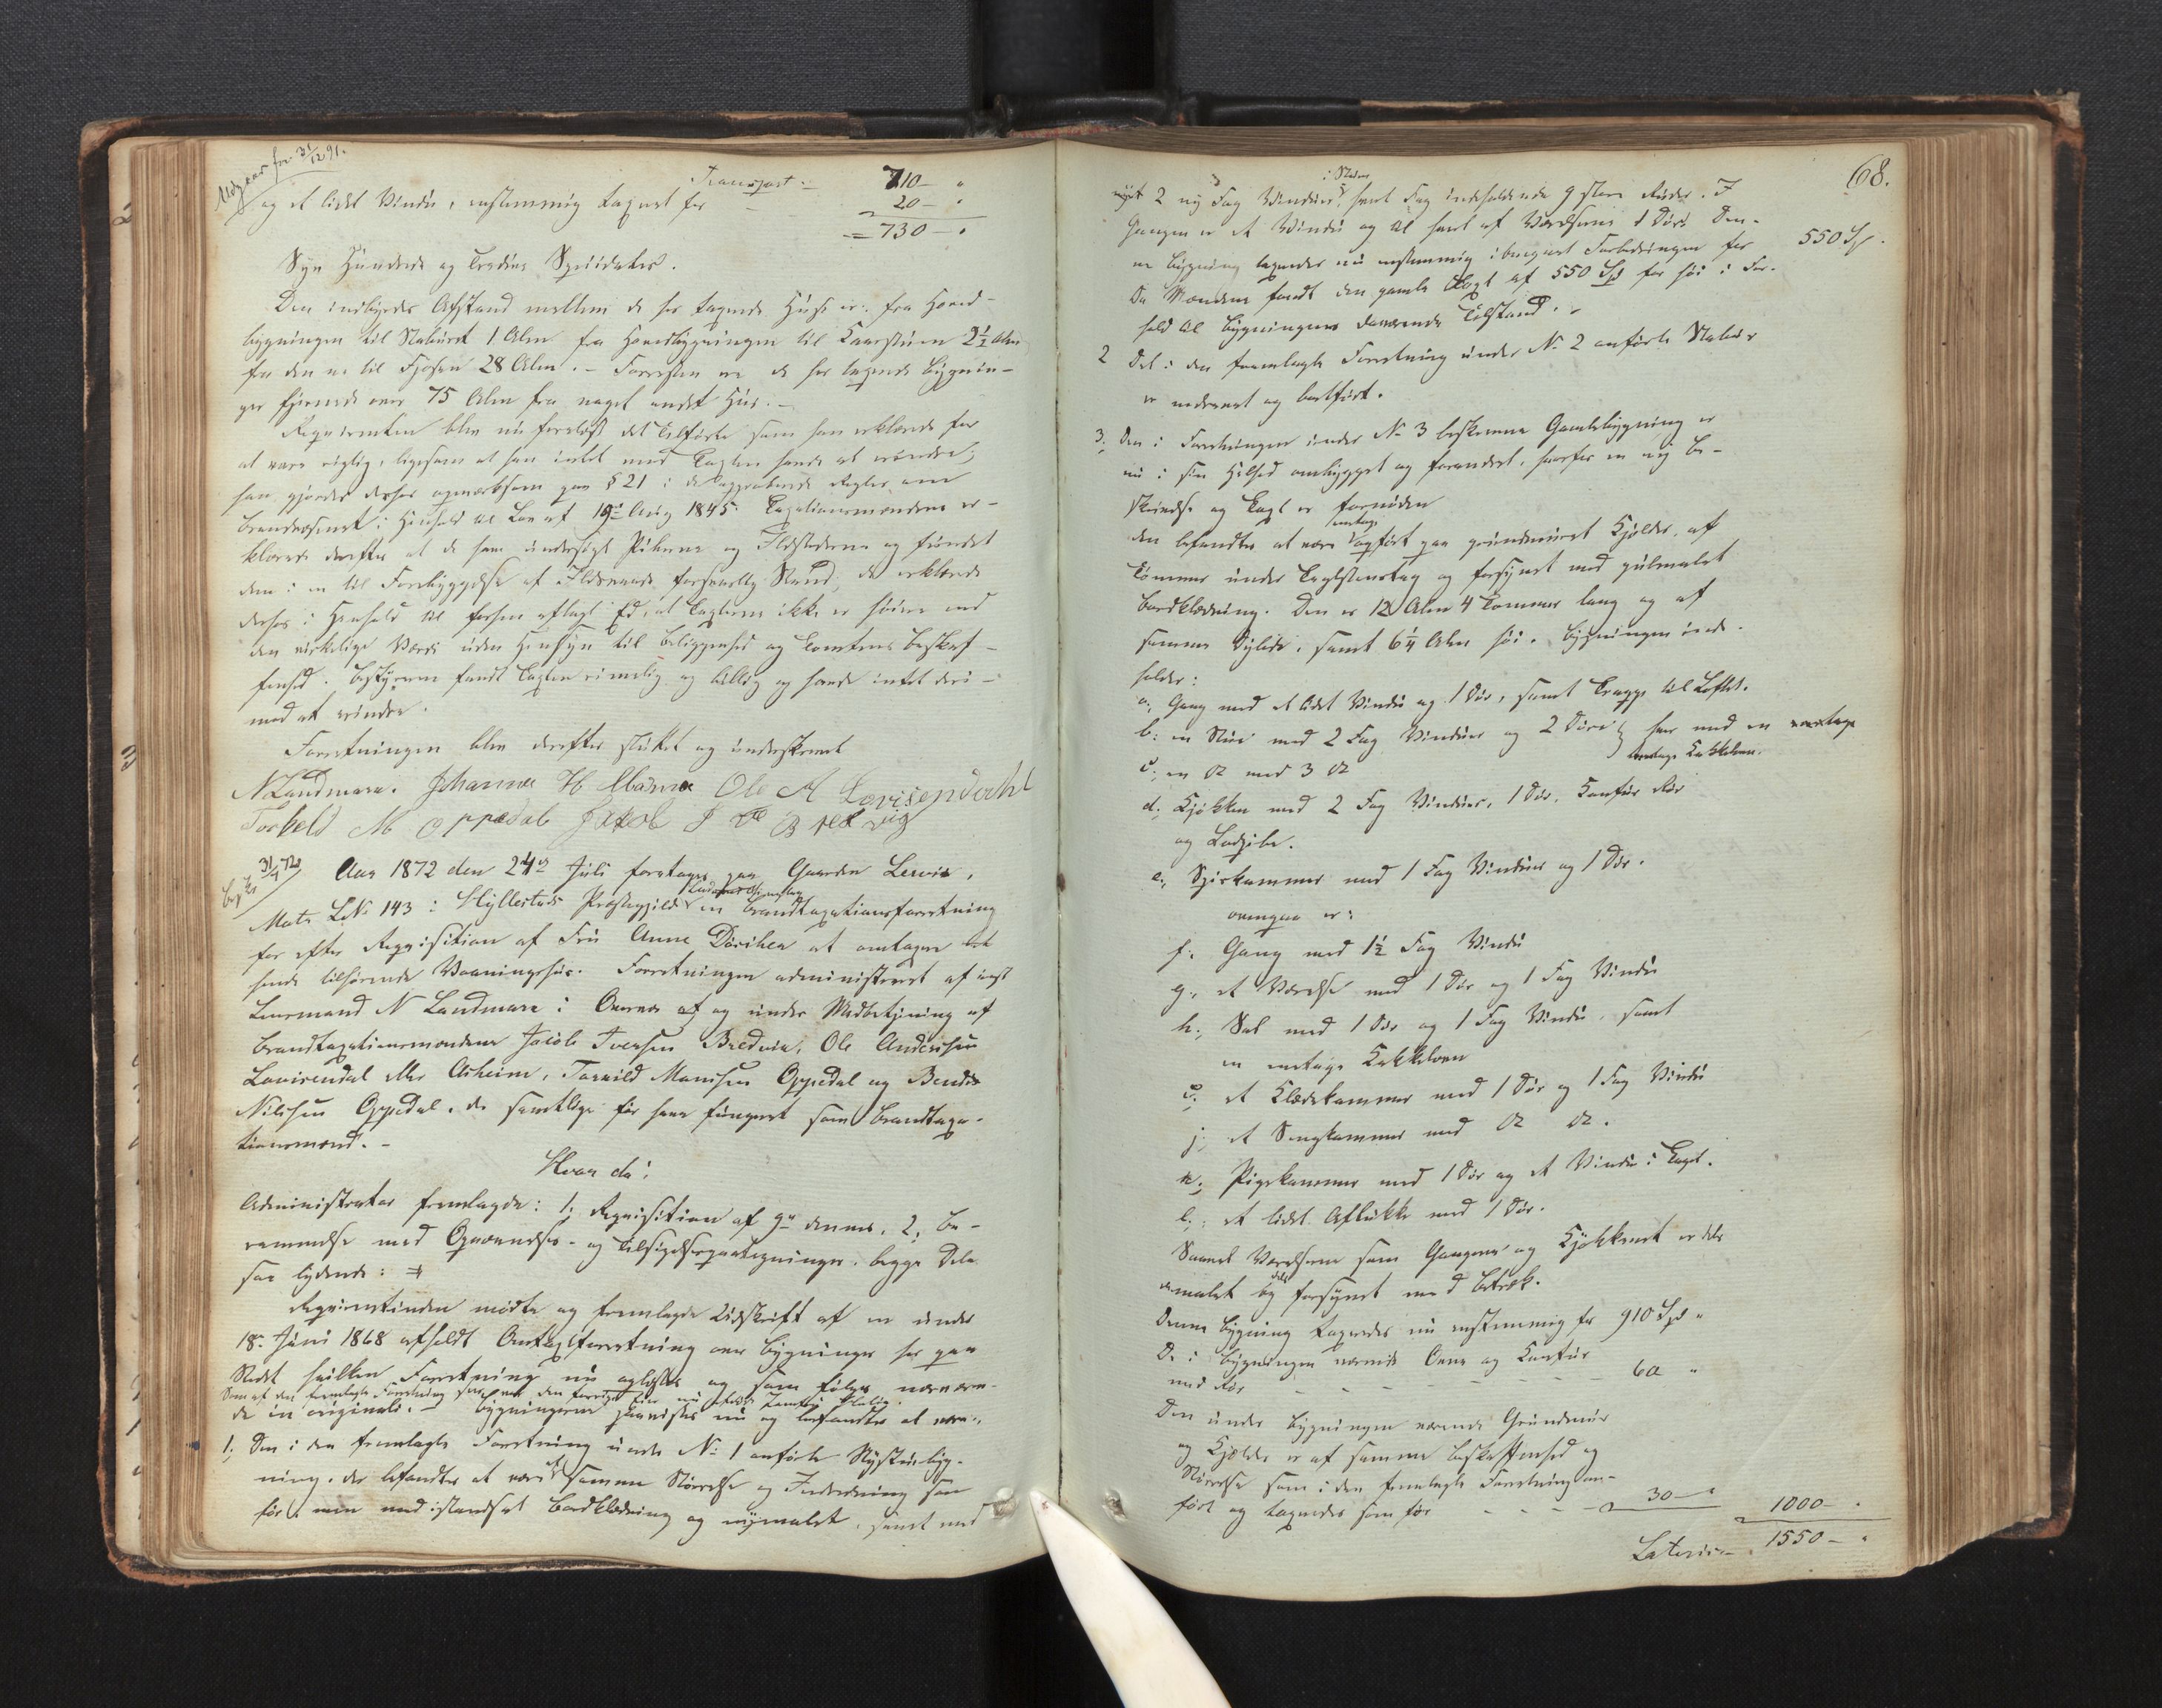 Udgaar fra 31/12 91.
Transport - 710 - "
og et lidet Vindu, enstemmig taxeret for - 20 - "
= 730 - "
Syv Hundrede og Tredive Speciedaler.
Den indbyrdes Afstand mellem de her taxerede Huse er: fra Hoved-
bygningen til Staburet 1 Alen fra Hovedbygningen til Kaarstuen 2½ Alen
fra den ene til Fjøsen 28 Alen. - Forresten ere de her taxerede Bygnin-
ger fjernede over 75 Alen fra noget andet Hus. -
Requirenten blev nu forelæst det Tilførte som han erklærede for
at være rigtig, ligesom at han intet mod Taxten havde at erindre;
han gjordes derhos opmærksom paa § 21 i de approberede Regler om
Brandvæsenet i Henhold til Lov af 19de Aug 1845. Taxationsmændene er-
klærede derefter at de have undersøgt Piberne og Ildstederne og fundet
dem i en til Forebyggelse af Ildsvaade forsvarlig Stand; de erklærede
derhos i Henhold til forhen aflagt Ed, at Taxterne ikke er høiere end
den virkelige Værdi uden Hensyn til Beliggenhed og Tomtens Beskaf-
fenhed. Bestyreren fandt Taxten rimelig og billig og havde intet der-
mod at erindre.
Forretningen blev derefter sluttet og underskrevet
N Landmark. Johannes H Ole A Lovisendahl
Torkeld M Oppedal Jakob I Bredvig
31/7 72
Aar 1872 den 24de Juli foretages paa Gaarden Lervik,
Matr LNo 143 i Hyllestads Præstegjeld en Brandtaxationsforretning
for efter Reqvisition af Fru Anne Dørihea at omtaxere det
hende tilhørende Vaaningshus. Forretningen administreret af
Lensmand N Landmark i Overvær af og under Medbetjening af
Brandtaxationsmændene Jacob Iversen Bredvik, Ole Andersen
Lovisendal eller Asheim, Torkild Monsen Oppedal og Bendix
Nilssen Oppedal, de samtlige før have fungeret som Brandtaxa-
tionsmænd. -
Hvor da:
Administrator fremlagde: 1, Reqvisition af 9de dennes. 2, Be-
rammelse med Opnævnelses- og Tilsigelsespaategninger. begge Dele
saa lydende:
Requirentinden mødte og fremlagde Udskrift af en under
18de Juni 1868 afholdt Omtaxtforretning over Bygninger her paa
Stedet hvilken Forretning nu oplæstes og som følger nærværen-
de in originali. - Bygningerne paavistes nu og befandtes at være:
1; Den i den fremlagte Forretning under No 1 anførte Nystuebyg-
ning, der befandtes at være af samme Størrelse og Indredning som
før, men med istandsat Bordklædning og nymalet, samt med
68.
i Stuen
nyt 2 ny Fag Vinduer, hvert Fag indeholdende 9 store Ruder. I
Gangen er et Vindu og til hvert af Værelserne 1 Dør. Den-
ne Bygning taxeredes nu enstemmig iberegnet Forbedringen for 550 Sp.
Da Mændene fandt den gamle Taxt af 550 Spd for høi i For-
hold til Bygningens daværende Tilstand.
2 Det i den fremlagte Forretning under No 2 anførte Stabur
er nedrevet og bortført.
3; Den i Forretningen under No 3 beskrevne Gamlebygning er
nu i sin Helhed ombygget og forandret, hvorfor en ny Be-
skrivelse og Taxt er fornøden
den befandtes at være opført paa grundmuret Kjelder, af
Tømmer under Taglstenstag og forsynet med gulmalet
Bordklædning. Den er 12 Alen 4 Tommer lang og af
samme Dybde, samt 6¼ Alen høi. Bygningen inde-
holder:
a; Gang med et lidet Vindu og 1 Dør, samt Trappe til Loftet.
b: en Stue med 2 Fag Vinduer og 2 Døre, her med en
c; en do med 3 do etages Kakkelovn.
d; Kjøkken med 2 Fag Vinduer, 1 Dør, Komfur Rør
og Bagsibe.
e; Spiskammer med 1 Fag Vinduer og 1 Dør.
ovenpaa er:
f. Gang med 1½ Fag Vindu
g; et Værelse med 1 Dør og 1 Fag Vindu
h; Sal med 1 Dør og 1 Fag Vindu, samt
en etages Kakkelovn
i; et Klædekammer med 1 Dør og 1 Fag Vindu
j; et Sengkammer med do do.
k; Pigekammer med 1 Dør og et Vindu i Taget.
l; et lidet Aflukke med 1 Dør.
Saavel Værelserne som Gangene og Kjøkkenet er dels
malet og dels forsynet med Betræk.
Denne Bygning taxeredes nu enstemmig for 910 Spd "
De i Bygningen værende Ovne og Komfur
med Rør - - - - - - - 60 "
Den under Bygningen værende Grundmur
og Kjelder er af samme Beskaffenhed og
Størrelse som i den fremlagte Forretning an-
ført og taxeredes som før - - - - 30 - " 1000 - "
Lateris - 1550 - "